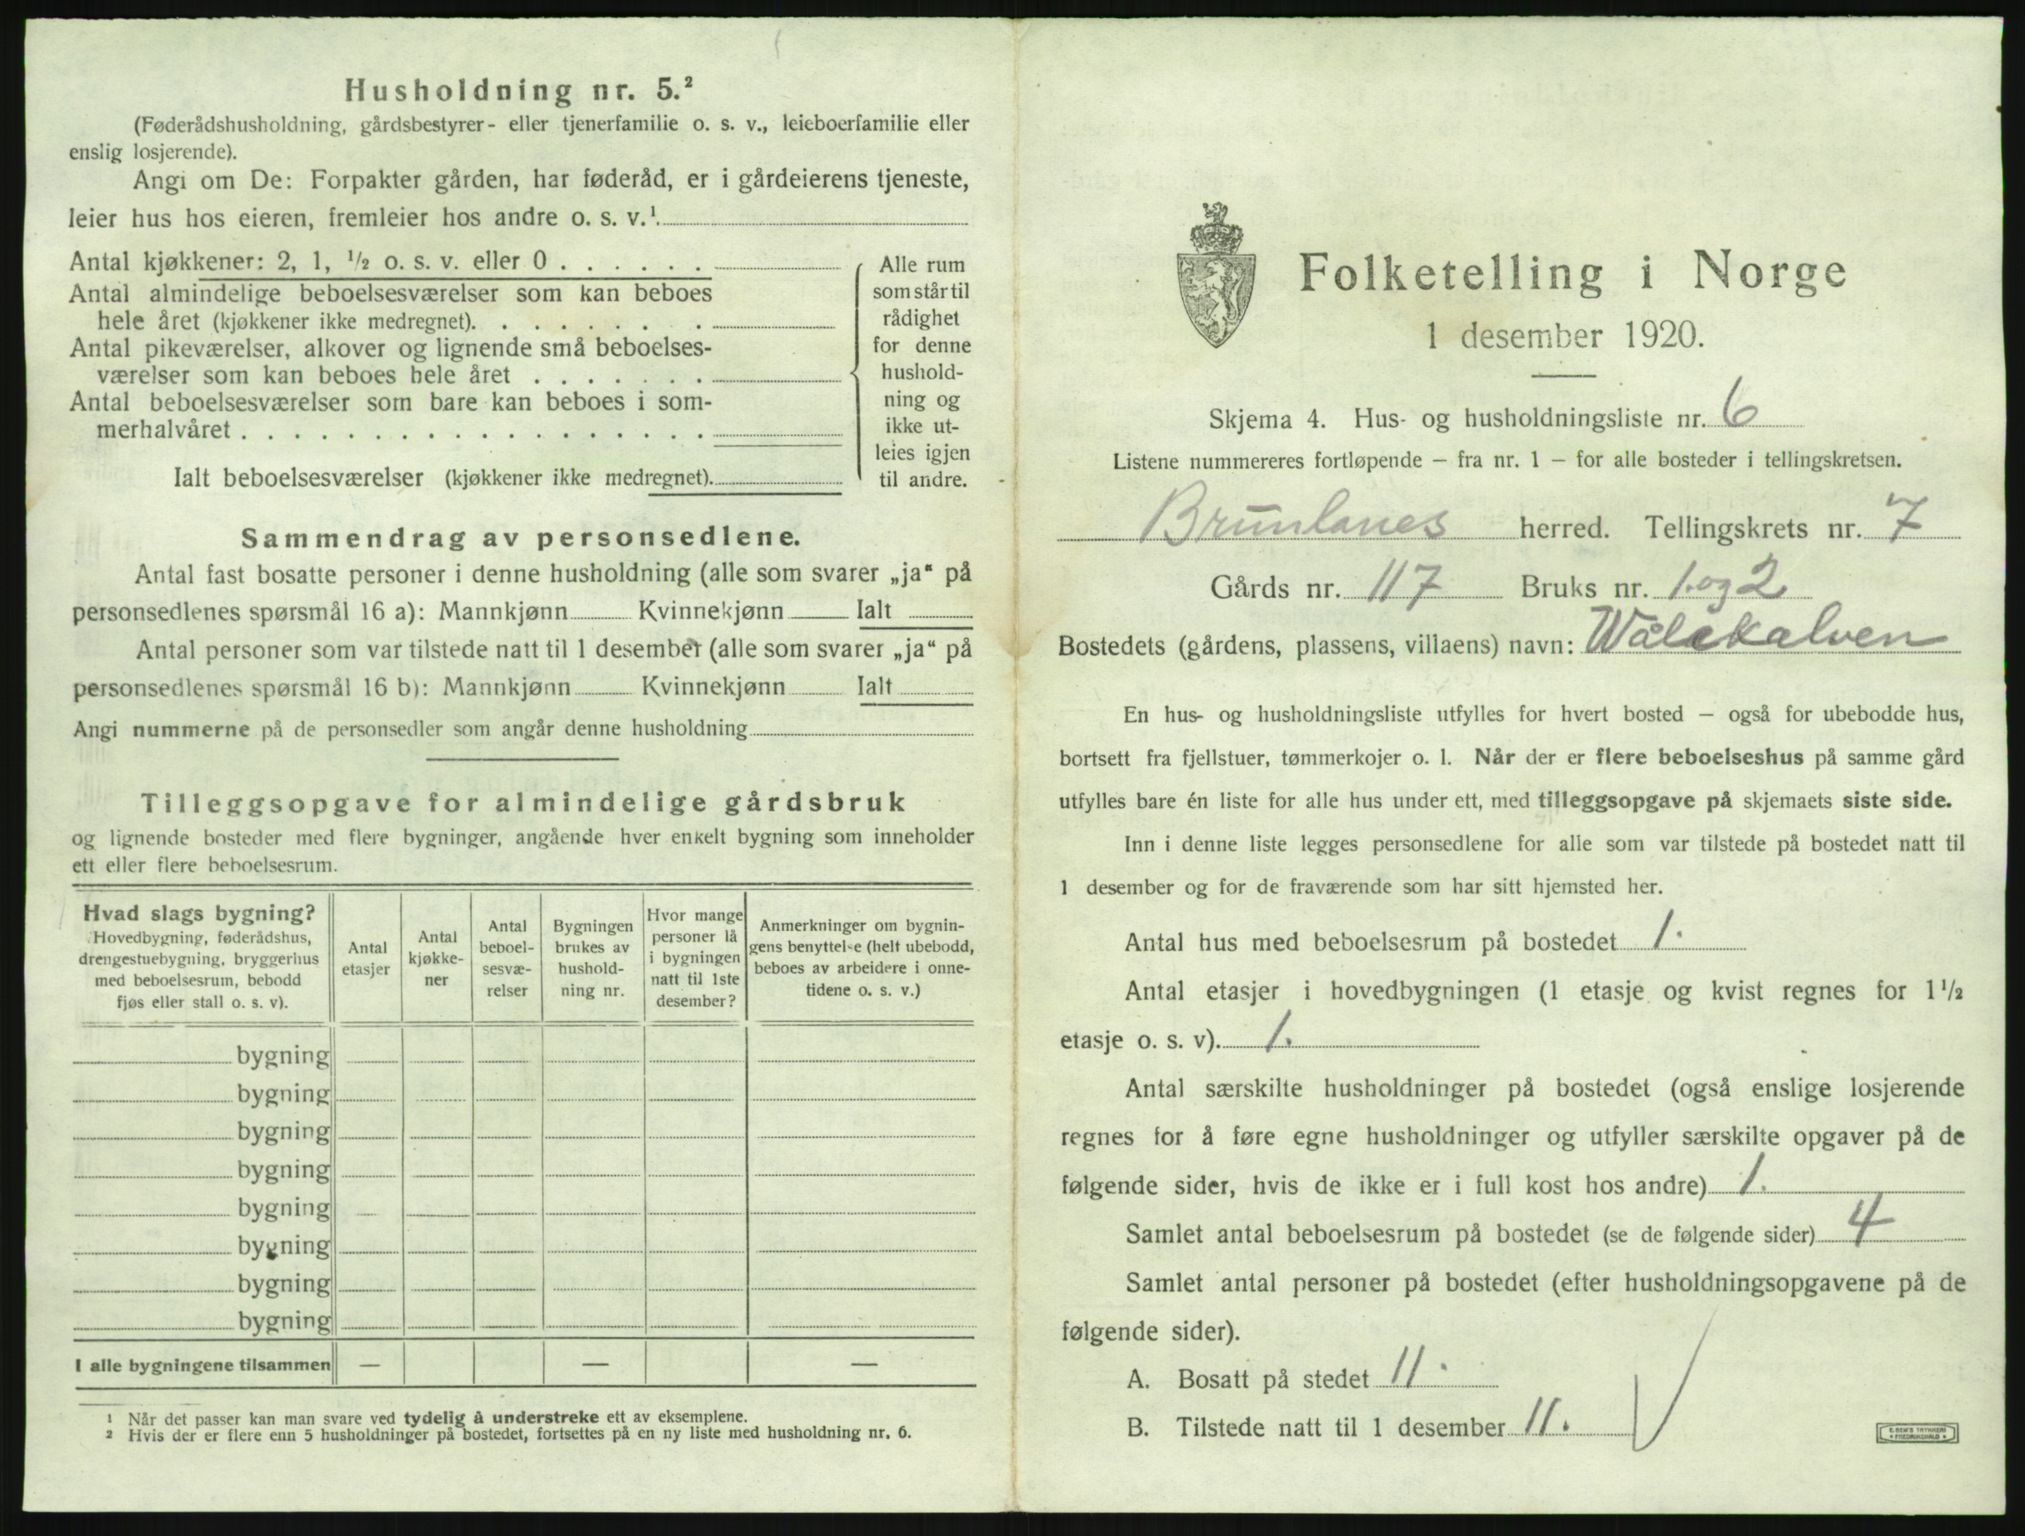 Husholdning nr. 5.²
(Føderådshusholdning, gårdsbestyrer- eller tjenerfamilie o. s. v., leieboerfamilie eller
enslig losjerende).
Angi om De: Forpakter gården, har føderåd, er i gårdeierens tjeneste,
leier hus hos eieren, fremleier hos andre o. s. v.¹
Antal kjøkkener: 2, 1, ½ o. s. v. eller 0 . . . . . .
Antal almindelige beboelsesværelser som kan beboes
hele året (kjøkkener ikke medregnet). . . . . . . .
Antal pikeværelser, alkover og lignende små beboelses-
værelser som kan beboes hele året . . . . . . .
Antal beboelsesværelser som bare kan beboes i som-
merhalvåret . . . . . . . . . . . . . . . . . .
Ialt beboelsesværelser (kjøkkener ikke medregnet).
Alle rum
som står til
rådighet
for denne
hushold-
ning og
ikke ut-
leies igjen
til andre.
Sammendrag av personsedlene.
Antal fast bosatte personer i denne husholdning (alle som svarer „ja“ på
personsedlenes spørsmål 16 a): Mannkjønn Kvinnekjønn Ialt
Antal personer som var tilstede natt til 1 desember (alle som svarer „ja“ på
personsedlenes spørsmål 16 b): Mannkjønn Kvinnekjønn Ialt
Angi nummerne på de personsedler som angår denne husholdning
Tilleggsopgave for almindelige gårdsbruk
og lignende bosteder med flere bygninger, angående hver enkelt bygning som inneholder
ett eller flere beboelsesrum.
Hvad slags bygning?
Hovedbygning, føderådshus,
drengestuebygning, bryggerhus
med beboelsesrum, bebodd
fjøs eller stall o. s. v).
Antal
etasjer
Antal
kjøkke-
ner
Antal
beboel-
sesvæ-
relser
Bygningen
brukes av
hushold-
ning nr.
Hvor mange
personer lå
i bygningen
natt til 1ste
desember?
Anmerkninger om bygnin-
gens benyttelse (helt ubebodd,
beboes av arbeidere i onne-
tidene o. s. v.)
bygning
bygning
bygning
bygning
bygning
bygning
bygning
bygning
I alle bygningene tilsammen — — —
¹ Når det passer kan man svare ved tydelig å understreke ett av eksemplene.
² Hvis der er flere enn 5 husholdninger på bostedet, fortsettes på en ny liste med husholdning nr. 6.
Folketelling i Norge
1 desember 1920.
Skjema 4. Hus- og husholdningsliste nr. 6
Listene nummereres fortløpende – fra nr. 1 – for alle bosteder i tellingskretsen.
Brunlanes herred. Tellingskrets nr. 7
Gårds nr. 117 Bruks nr. 1. og 2
Bostedets (gårdens, plassens, villaens) navn: Wålekalven
En hus- og husholdningsliste utfylles for hvert bosted – også for ubebodde hus,
bortsett fra fjellstuer, tømmerkojer o. l. Når der er flere beboelseshus på samme gård
utfylles bare én liste for alle hus under ett, med tilleggsopgave på skjemaets siste side.
Inn i denne liste legges personsedlene for alle som var tilstede på bostedet natt til
1 desember og for de fraværende som har sitt hjemsted her.
Antal hus med beboelsesrum på bostedet 1.
Antal etasjer i hovedbygningen (1 etasje og kvist regnes for 1½
etasje o. s. v). 1.
Antal særskilte husholdninger på bostedet (også enslige losjerende
regnes for å føre egne husholdninger og utfyller særskilte opgaver på de
følgende sider, hvis de ikke er i full kost hos andre) 1.
Samlet antal beboelsesrum på bostedet (se de følgende sider) 4
Samlet antal personer på bostedet (efter husholdningsopgavene på de
følgende sider).
A. Bosatt på stedet 11.
B. Tilstede natt til 1 desember 11.